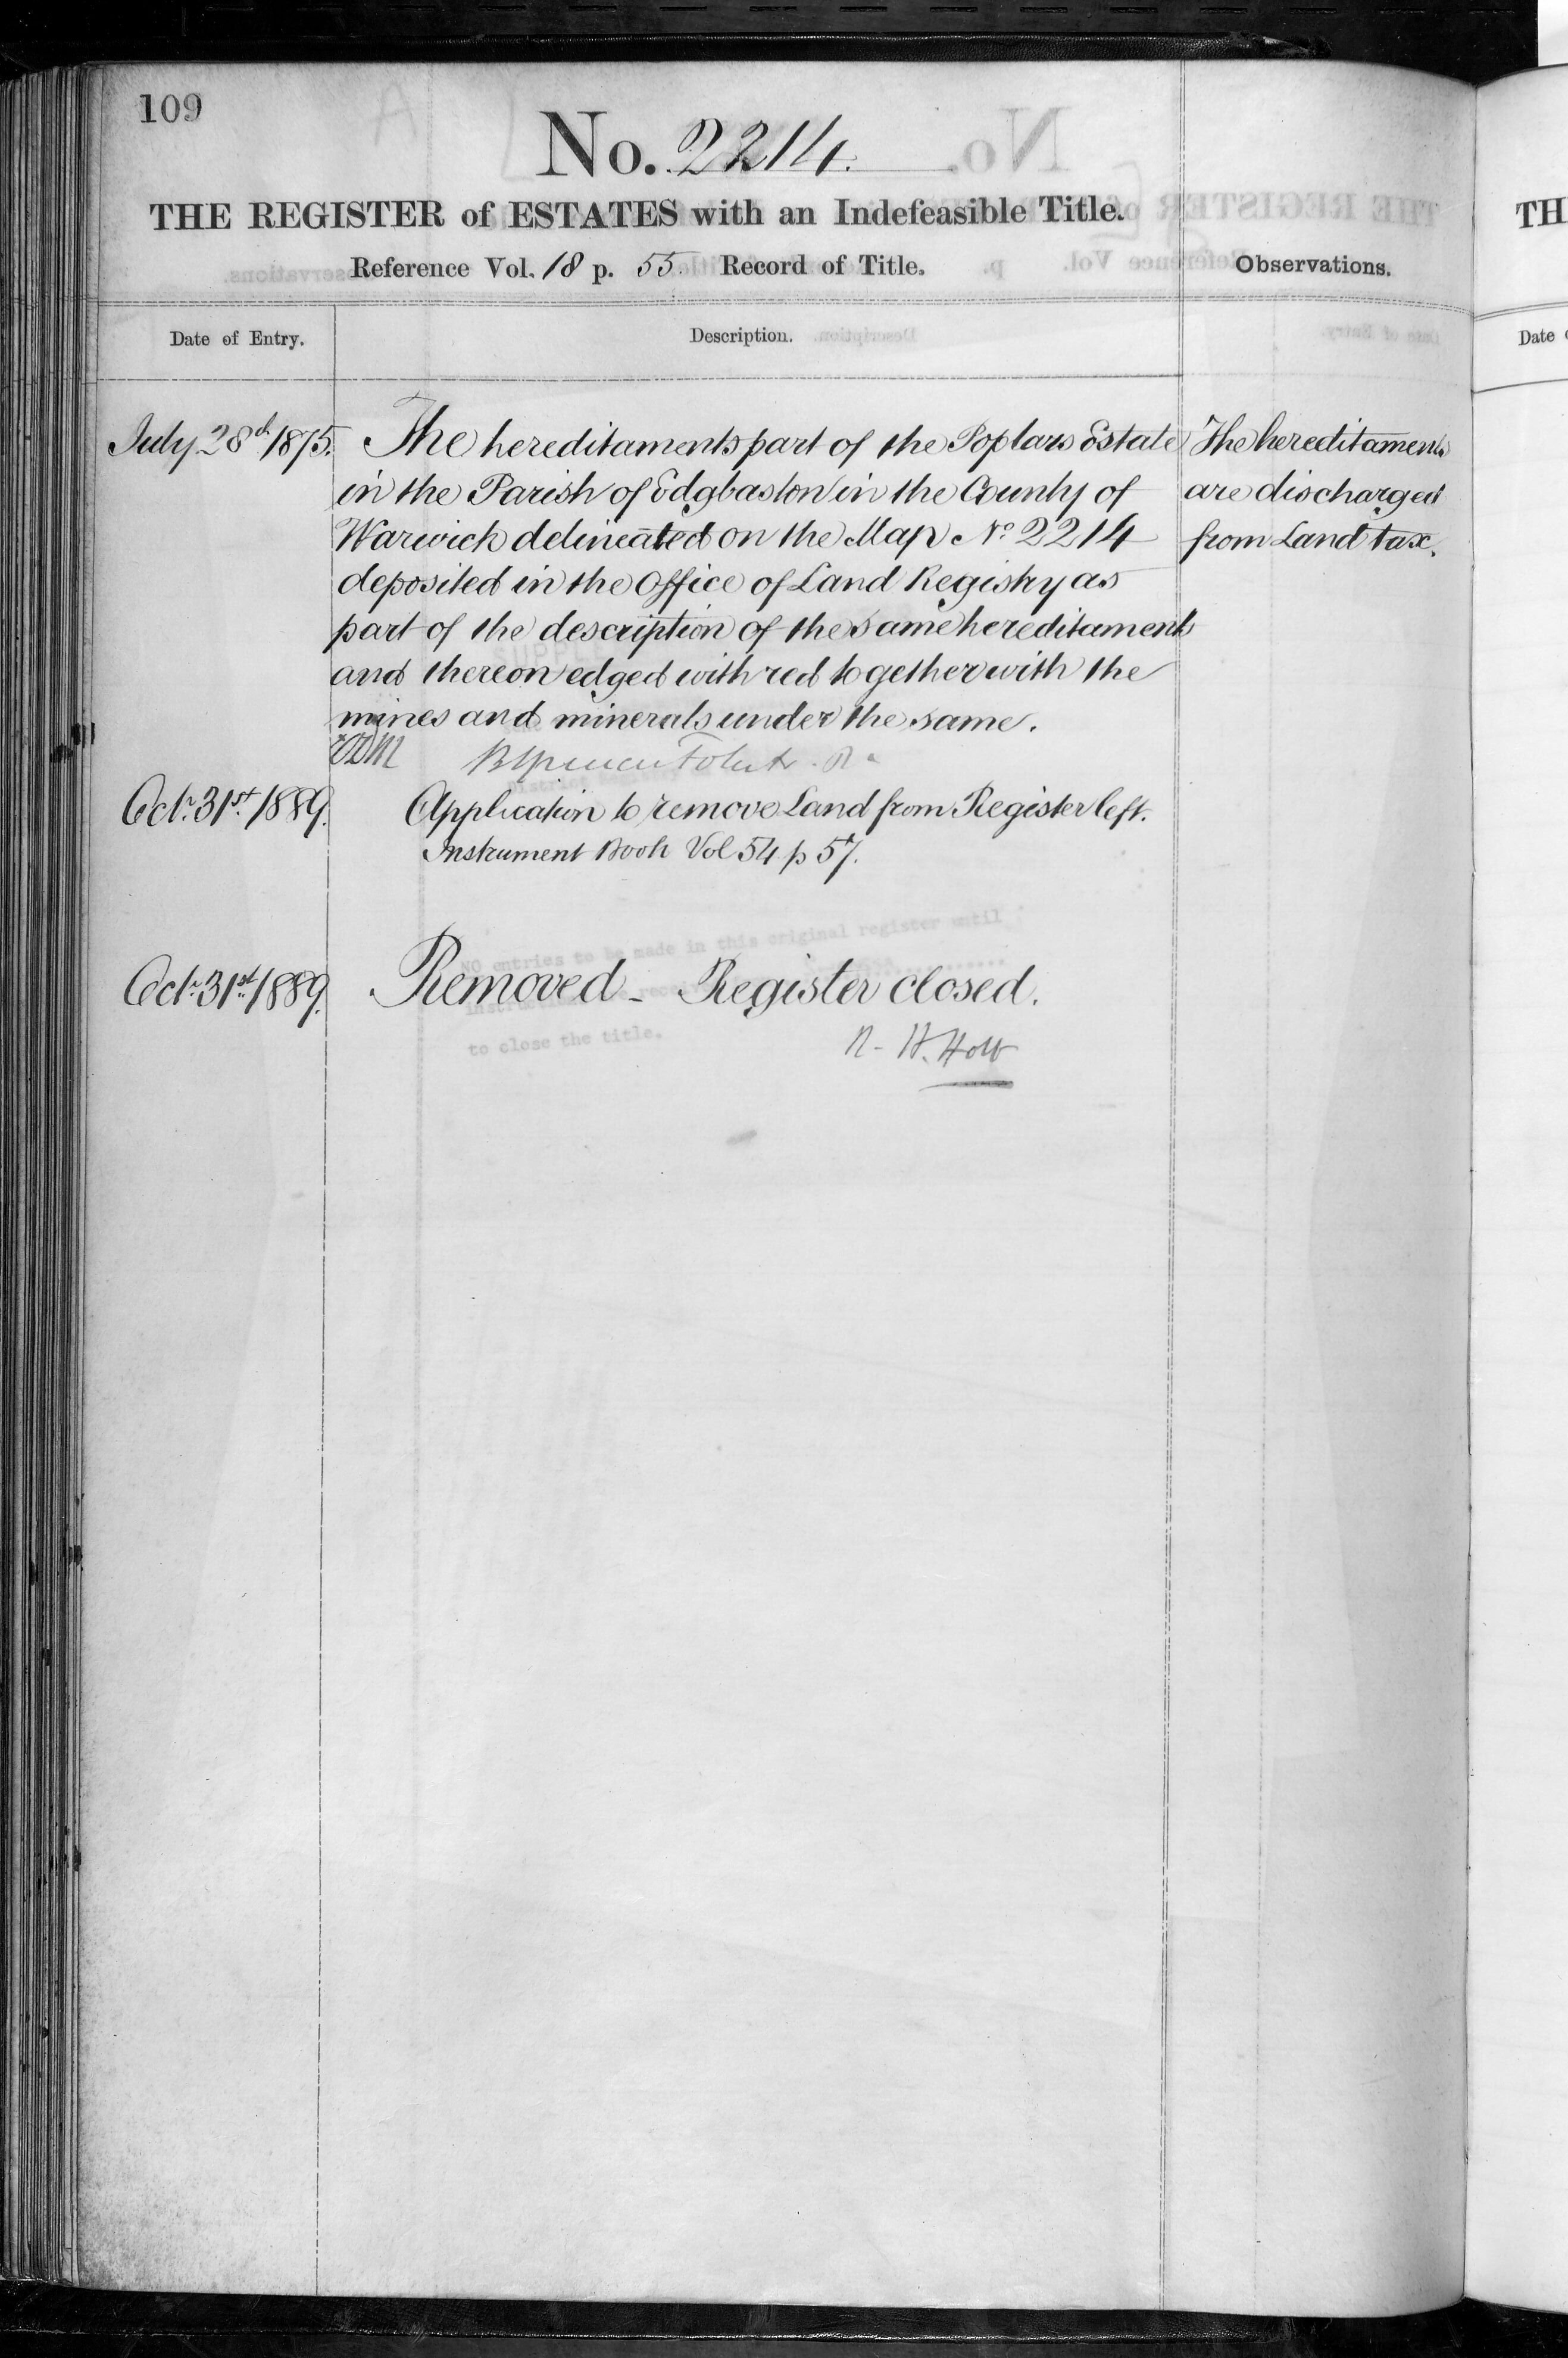 109
No. 2214.
THE REGISTER of ESTATES with an Indefeasible Title.
Reference Vol. 18 p. 55. Record of Title.
Observations.
Date of Entry.
Description.
July 28th 1875.
The hereditaments part of the Poplars Estate
in the Parish of Edgbaston in the County of
Warwick delineated on the Map No. 2214
deposited in the Office of Land Registry as
part of the description of the same hereditaments
and thereon edged with red together with the
mines and minerals under the same.
The hereditaments
are discharged
from Land tax.
Octr. 31st. 1889.
Application to remove Land from Register left.
Instrument Book Vol 54 p 57.
Octr. 31st. 1889.
Removed - Register closed.
R. H. Holt
NO entries to be made in this original register until
to close the title.
TH
Date